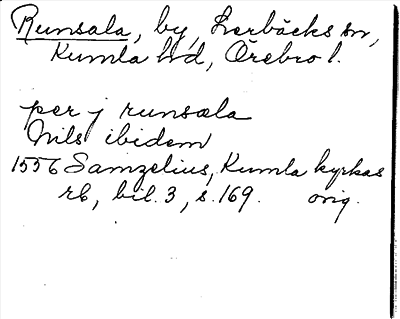 Runsala, by, Lerbäcks sn,
Kumla hd, Örebro l.
per j runsæla
Nils ibidem
1556 Samzelius, Kumla kyrkas
rb, bil. 3, s. 169. orig.